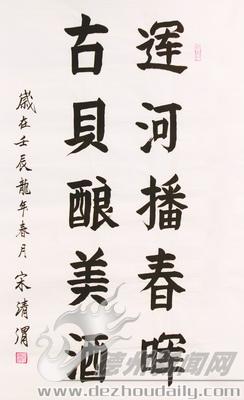 运河播春晖
古貝酿美酒
歲在壬辰龍年春月 宋清渭
德州新闻网
www.dezhoudaily.com